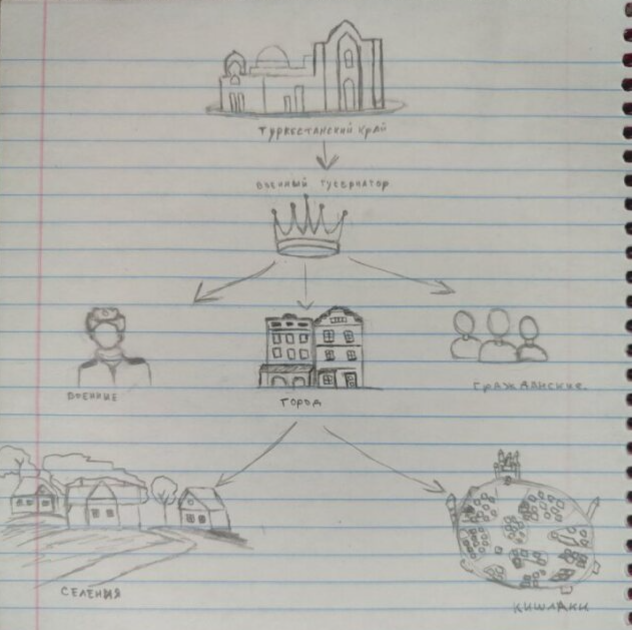 Туркестанский край
военный губернатор
военные
город
гражданские.
селения
кишлаки